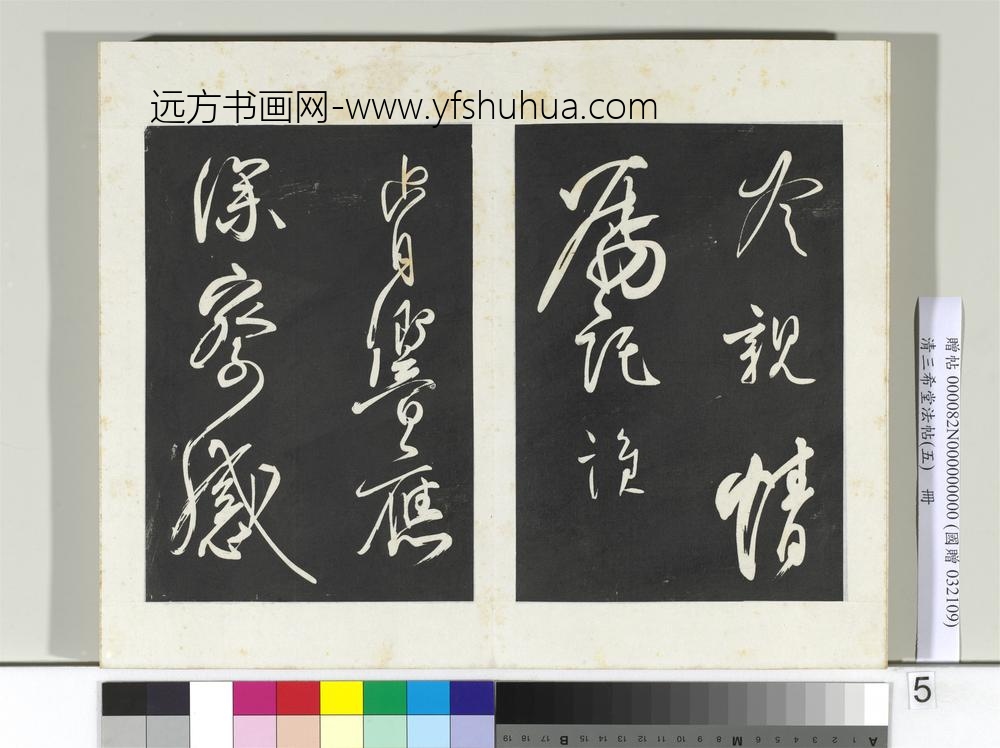 远方书画网-www.yfshuhua.com
親情
屬託
響應
深察感
贈帖 000082N000000000 (國贈 032109)
清三希堂法帖(五) 冊
5
A 1 2 3 4 5 6 M 8 9 10 11 12 13 14 15 B 17 18 19